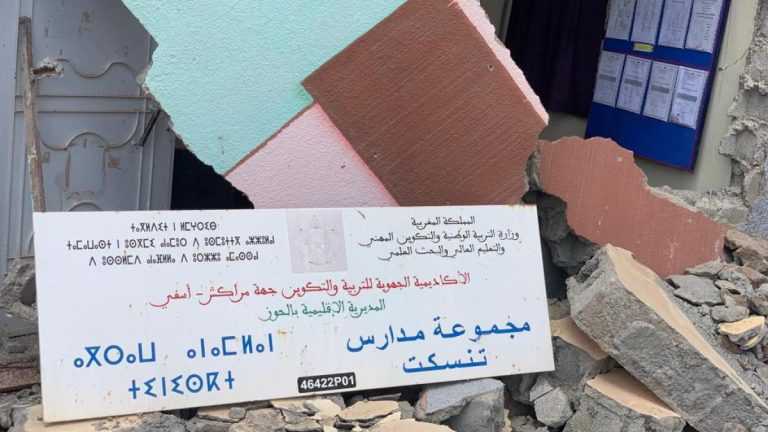 المملكة المغربية
وزارة التربية الوطنية والتكوين المهني
والتعليم العالي والبحث العلمي
ⵜⴰⴳⵍⴷⵉⵜ ⵏ ⵍⵎⵖⵔⵉⴱ
ⵜⴰⵎⴰⵡⴰⵙⵜ ⵏ ⵓⵙⴳⵎⵉ ⴰⵏⴰⵎⵓⵔ ⴷ ⵓⵙⵎⵓⵜⵜⴳ ⴰⵣⵣⵓⵍⴰⵏ
ⴷ ⵓⵙⵙⵍⵎⴷ ⴰⵏⴰⴼⵍⵍⴰ ⴷ ⵓⵔⵣⵣⵓ ⴰⵎⴰⵙⵙⴰⵏ
الأكاديمية الجهوية للتربية والتكوين جهة مراكش - أسفي
المديرية الإقليمية بالحوز
مجموعة مدارس
تنسكت
ⴰⴳⵔⴰⵡ ⴰⵏⴰⵎⵍⴰⵏ
ⵜⵉⵏⵉⵙⴽⵜ
46422P01